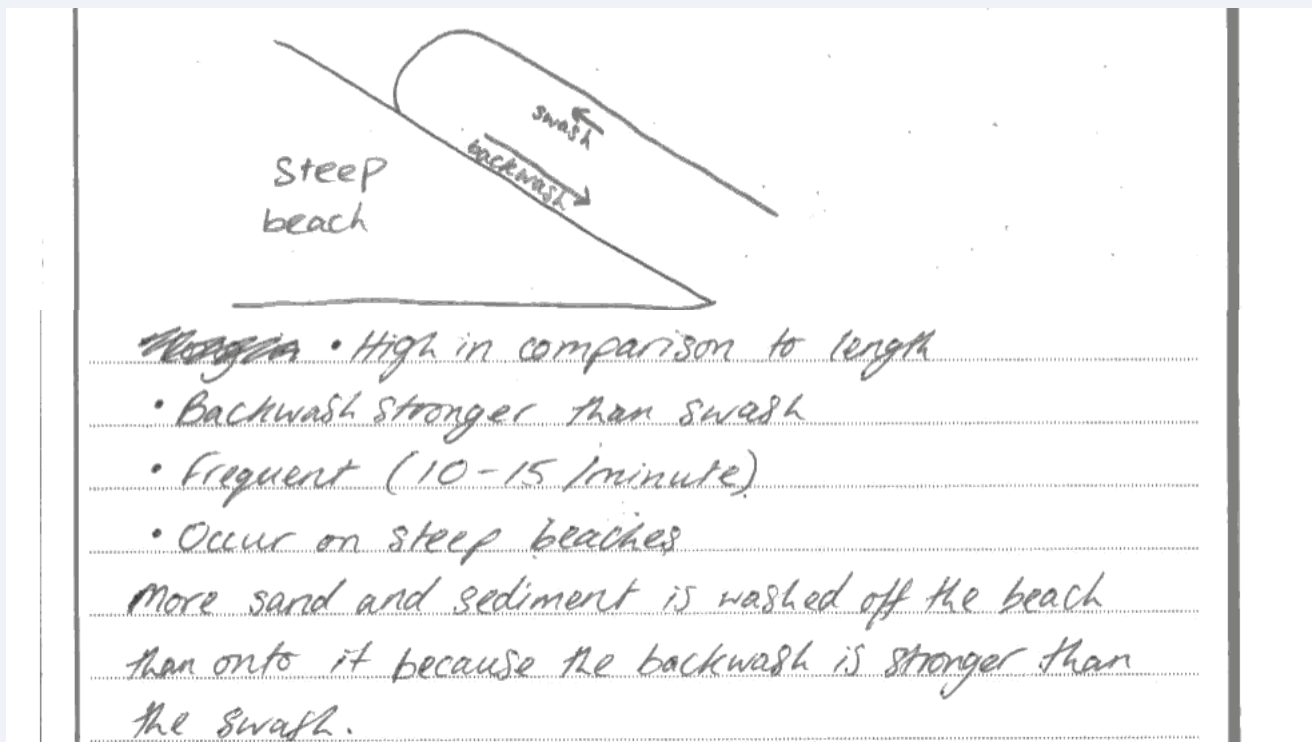 swash
backwash
Steep
beach
• High in comparison to length
• Backwash stronger than swash
• Frequent (10-15/minute)
• Occur on steep beaches
More sand and sediment is washed off the beach
than onto it because the backwash is stronger than
the swash.